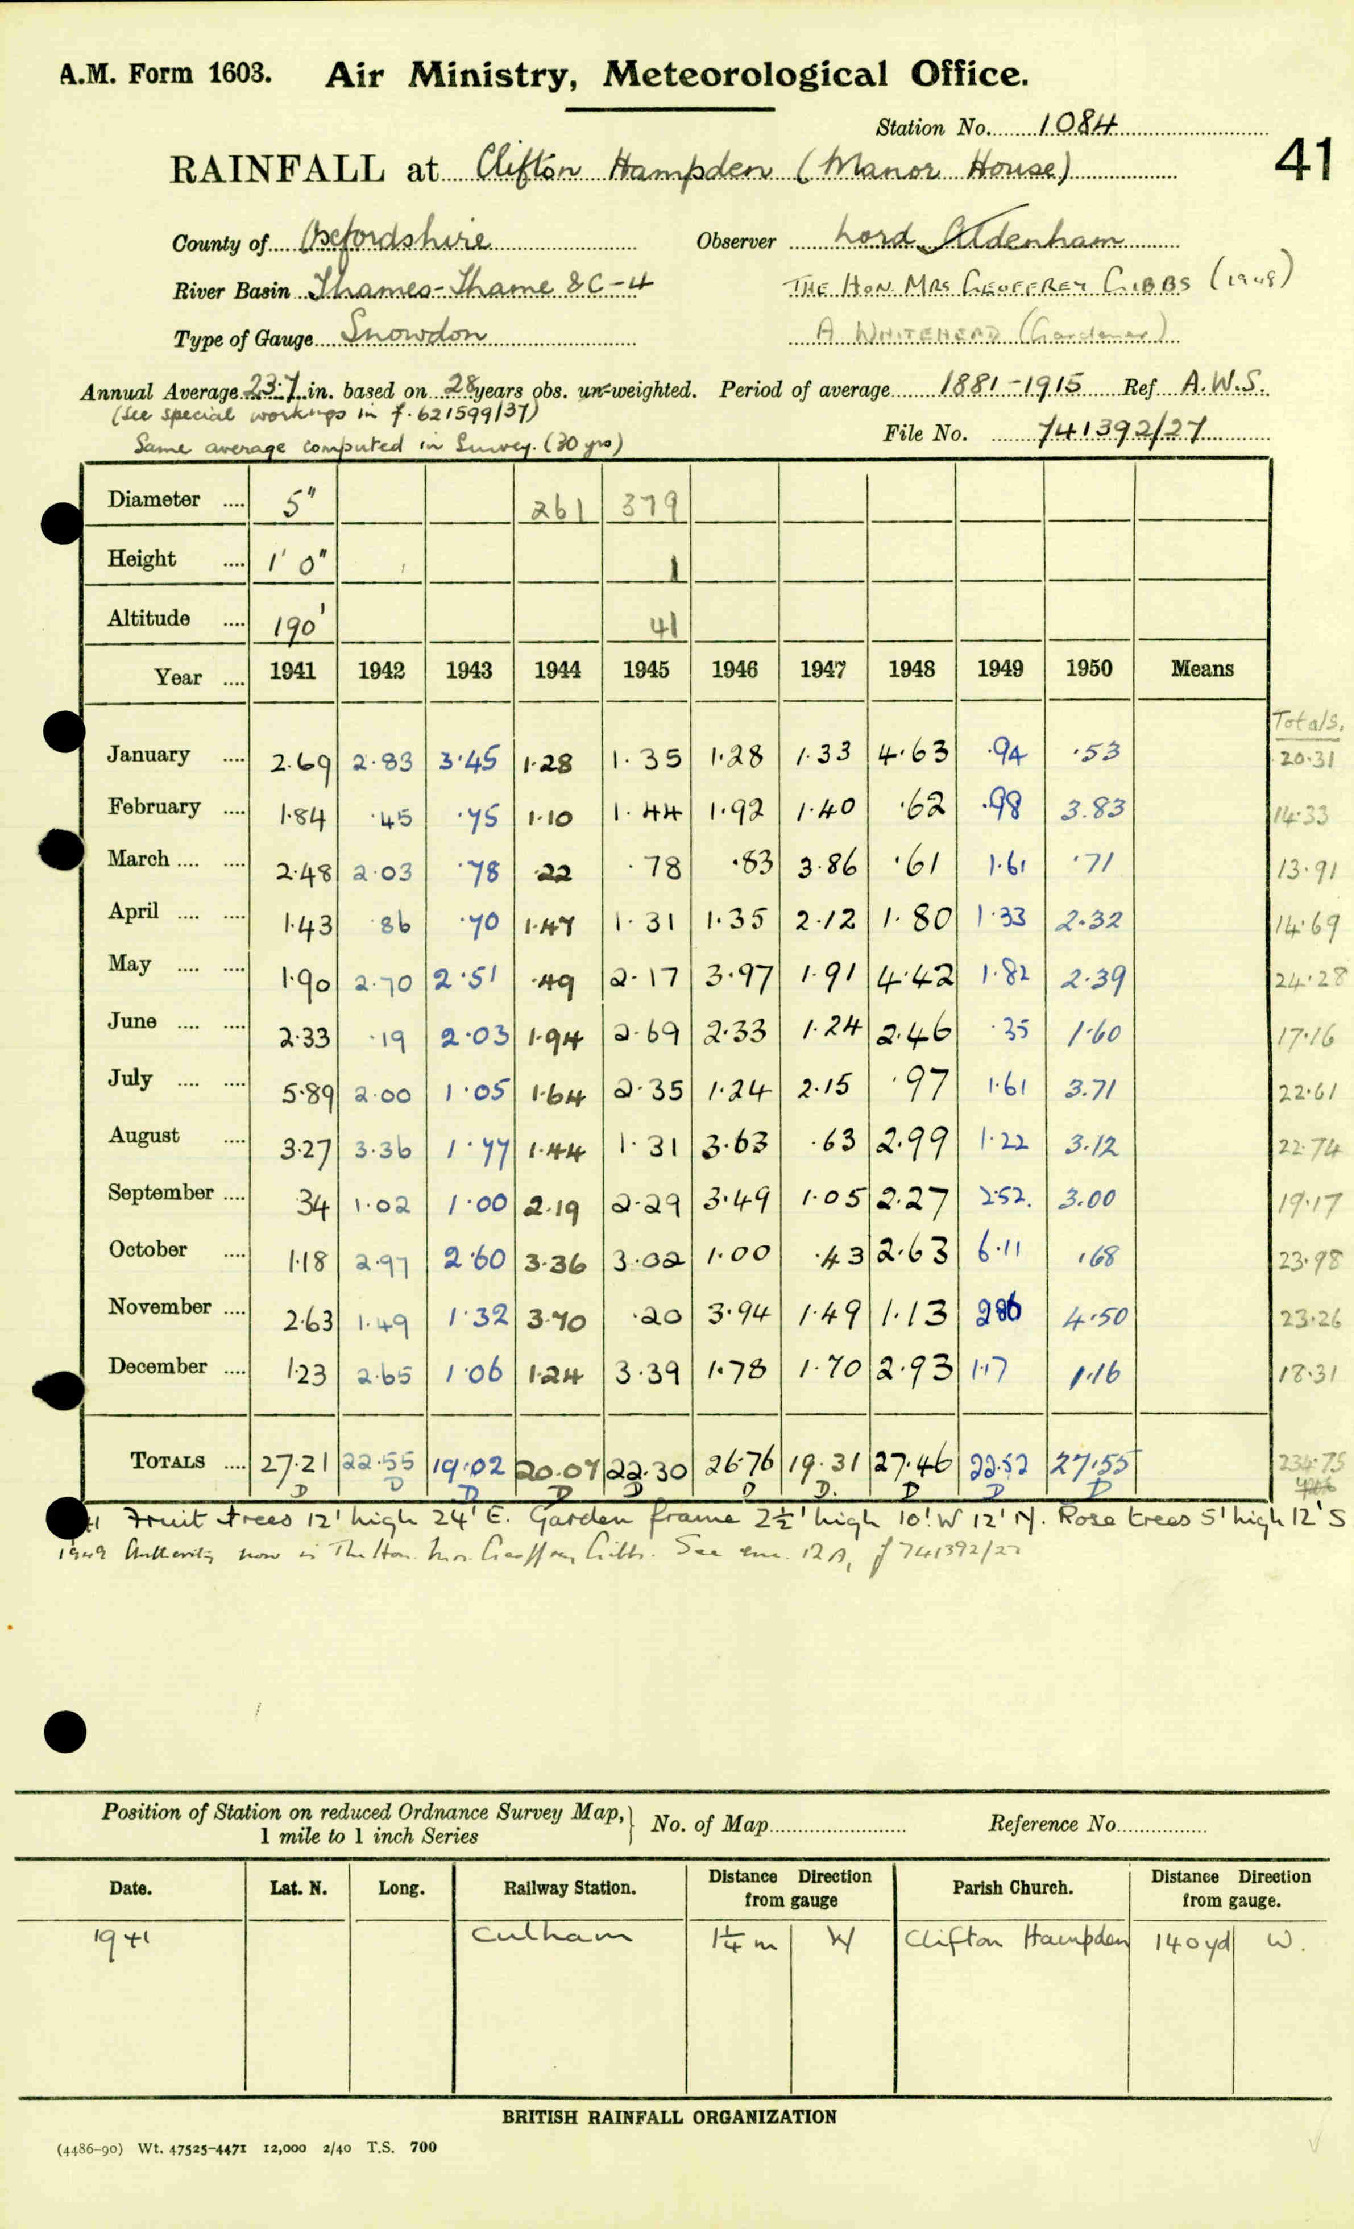 A.M. Form 1603. Air Ministry, Meteorological Office.
Station No. 1084
41
RAINFALL at Clifton Hampden (Manor House)
County of Oxfordshire Observer Lord Aldenham
River Basin Thames-Thame &C-4 THE HON. MRS GEOFFREY GIBBS (1948)
Type of Gauge Snowdon A WHITEHEAD (Gardener)
Annual Average 23.7 in. based on 28 years obs. un-weighted. Period of average 1881-1915 Ref A.W.S.
(See special workings in f. 621599/37)
File No. 741392/27
Same average computed in Survey. (30 yrs)
Diameter .... 5" 261 379
Height .... 1' 0" 1
Altitude .... 190' 41
Year .... 1941 1942 1943 1944 1945 1946 1947 1948 1949 1950 Means
Totals.
January .... 2.69 2.83 3.45 1.28 1.35 1.28 1.33 4.63 .94 .53 20.31
February .... 1.84 .45 .75 1.10 1.44 1.92 1.40 .62 .98 3.83 14.33
March .... .... 2.48 2.03 .78 .22 .78 .83 3.86 .61 1.61 .71 13.91
April .... .... 1.43 .86 .70 1.47 1.31 1.35 2.12 1.80 1.33 2.32 14.69
May .... .... 1.90 2.70 2.51 .49 2.17 3.97 1.91 4.42 1.82 2.39 24.28
June .... .... 2.33 .19 2.03 1.94 2.69 2.33 1.24 2.46 .35 1.60 17.16
July .... .... 5.89 2.00 1.05 1.64 2.35 1.24 2.15 .97 1.61 3.71 22.61
August .... 3.27 3.36 1.77 1.44 1.31 3.63 .63 2.99 1.22 3.12 22.74
September .... 34 1.02 1.00 2.19 2.29 3.49 1.05 2.27 2.52. 3.00 19.17
October .... 1.18 2.97 2.60 3.36 3.02 1.00 .43 2.63 6.11 .68 23.98
November .... 2.63 1.49 1.32 3.70 .20 3.94 1.49 1.13 2.86 4.50 23.26
December .... 1.23 2.65 1.06 1.24 3.39 1.78 1.70 2.93 1.17 1.16 18.31
TOTALS .... 27.21 22.55 19.02 20.07 22.30 26.76 19.31 27.46 22.52 27.55 234.75
D D D D D D D. D D D
41 Fruit trees 12' high 24' E. Garden frame 2½' high 10' W 12' N. Rose trees 5' high 12' S
1949 Authority now is The Hon. Mrs. Geoffrey Gibbs. See 12A, f 741392/27
Position of Station on reduced Ordnance Survey Map,
1 mile to 1 inch Series
No. of Map Reference No.
Date. Lat. N. Long. Railway Station. Distance Direction from gauge Parish Church. Distance Direction from gauge.
1941 Culham 1¼ m W Clifton Hampden 140 yd W.
BRITISH RAINFALL ORGANIZATION
(4486-90) Wt. 47525-4471 12,000 2/40 T.S. 700